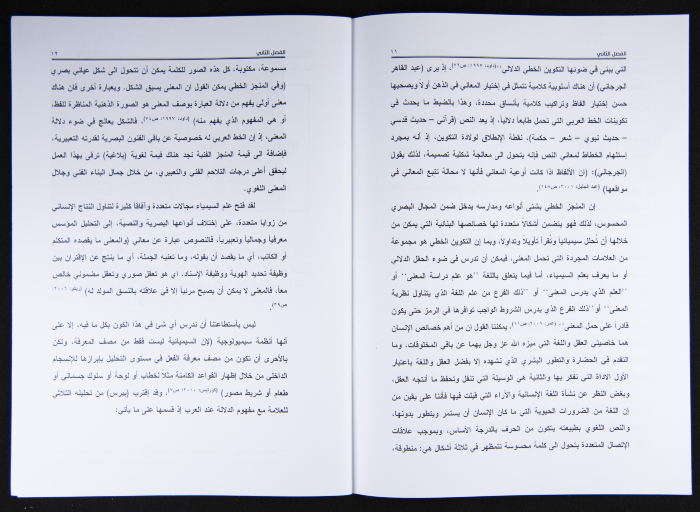 الفصل الثاني ١١
التي يبنى في ضوئها التكوين الخطي الدلالي إذ يرى (عبد القاهر
الجرجاني) أن هناك أسلوبية كلامية تتمثل في إختيار المعاني في الذهن أولا ويصحبها
حسن إختيار الفاظ وتراكيب كلامية بأنساق محددة، وهذا بالضبط ما يحدث في
تكوينات الخط العربي التي تحمل طابعاً دلالياً، إذ يعد النص (قرآني – حديث قدسي
– حديث نبوي – شعر – حكمة)، نقطة الإنطلاق لولادة التكوين، إذ أنه بمجرد
إستلهام الخطاط لمعاني النص فإنه يتحول الى معالجة شكلية تصميمة، لذلك يقول
(الجرجاني): (إن الألفاظ اذا كانت أوعية المعاني فأنها لا محالة تتبع المعاني في
مواقعها)
إن المنجز الخطي بشتى أنواعه ومدارسه يدخل ضمن المجال البصري
المحسوس، لذلك فهو يتضمن أشكالا متعددة لها خصائصها البنائية التي يمكن من
خلالها أن نحلل سيميائيا ونقرأ تأويلا وتداولا، وبما إن التكوين الخطي هو مجموعة
من العلامات المجردة التي تحمل المعنى، فيمكن أن تدرس في ضوء الحقل الدلالي
أو ما يعرف بعلم السيمياء، أما فيما يتعلق باللغة "هو علم دراسة المعنى" أو
"العلم الذي يدرس المعنى" أو "ذلك الفرع من علم اللغة الذي يتناول نظرية
المعنى" أو "ذلك الفرع الذي يدرس الشروط الواجب توافرها في الرمز حتى يكون
قادرا على حمل المعنى" يمكننا القول ان من أهم خصائص الإنسان
هما خاصيتي العقل واللغة التي ميزه الله عز وجل بهما عن باقي المخلوقات، وما
التقدم في الحضارة والتطور البشري الذي نشهده إلا بفضل العقل واللغة باعتبار
الأول الاداة التي نفكر بها والثانية هي الوسيلة التي تنقل وتحفظ ما أنتجه العقل،
وبغض النظر عن نشأة اللغة الإنسانية والأراء التي قيلت فيها فأننا على يقين من
إن اللغة من الضرورات الحيوية التي ما كان الإنسان أن يستمر ويتطور بدونها،
والنص اللغوي بطبيعته يتكون من الحرف بالدرجة الأساس، وبموجب علاقات
الإتصال المتعددة يتحول الى كلمة محسوسة تتمظهر في ثلاثة أشكال هي: منطوقة،
الفصل الثاني ١٢
مسموعة، مكتوبة، كل هذه الصور للكلمة يمكن أن تتحول الى شكل عياني بصري
(وفي المنجز الخطي يمكن القول ان المعنى يسبق الشكل. وبعبارة أخرى فأن هناك
معنى أولي يفهم من دلالة العبارة بوصف المعنى هو الصورة الذهنية المناظرة للفظ،
أو هي المفهوم الذي يفهم منه) فالشكل يعالج في ضوء دلالة
المعنى، إذ إن الخط العربي له خصوصية عن باقي الفنون البصرية لقدرته التعبيرية،
فإضافة الى قيمة المنجز الفنية نجد هناك قيمة لغوية (بلاغية) ترقى بهذا العمل
ليحقق أعلى درجات التلاحم الفني والتعبيري، من خلال جمال البناء الفني وجلال
المعنى اللغوي.
لقد فتح علم السيمياء مجالات متعددة وآفاقاً كثيرة لتناول النتاج الإنساني
من زوايا متعددة، على إختلاف أنواعها البصرية والنصية، إلى التحليل المؤسس
معرفياً وجمالياً وتعبيرياً، فالنصوص عبارة عن معاني (والمعنى ما يقصده المتكلم
أو الكاتب، أي ما يقصد أن يقوله، وما تعنيه الجملة، أي ما ينتج عن الإقتران بين
وظيفة تحديد الهوية ووظيفة الإسناد، اي هو تعقل صوري وتعقل مضموني خالص
معاً، فالمعنى لا يمكن أن يصبح مرئيا إلا في علاقته بالنسق المولد له)
ص٣٩)
ليس بأستطاعتنا أن ندرس أي شئ في هذا الكون بكل ما فيه، إلا على
أنها أنظمة سيميولوجية (لإن السيميائية ليست فقط من مصف المعرفة، ولكن
بالأحرى أن تكون من مصف معرفة الفعل في مستوى التحليل بإبرازها للإنسجام
الداخلي من خلال إظهار القواعد الكامنة مثلا لخطاب أو لوحة أو سلوك جسماني أو
طعام أو شريط مصور) وقد إقترب (بيرس) من تحليله الثلاثي
للعلامة مع مفهوم الدلالة عند العرب إذ قسمها على ما يأتي: